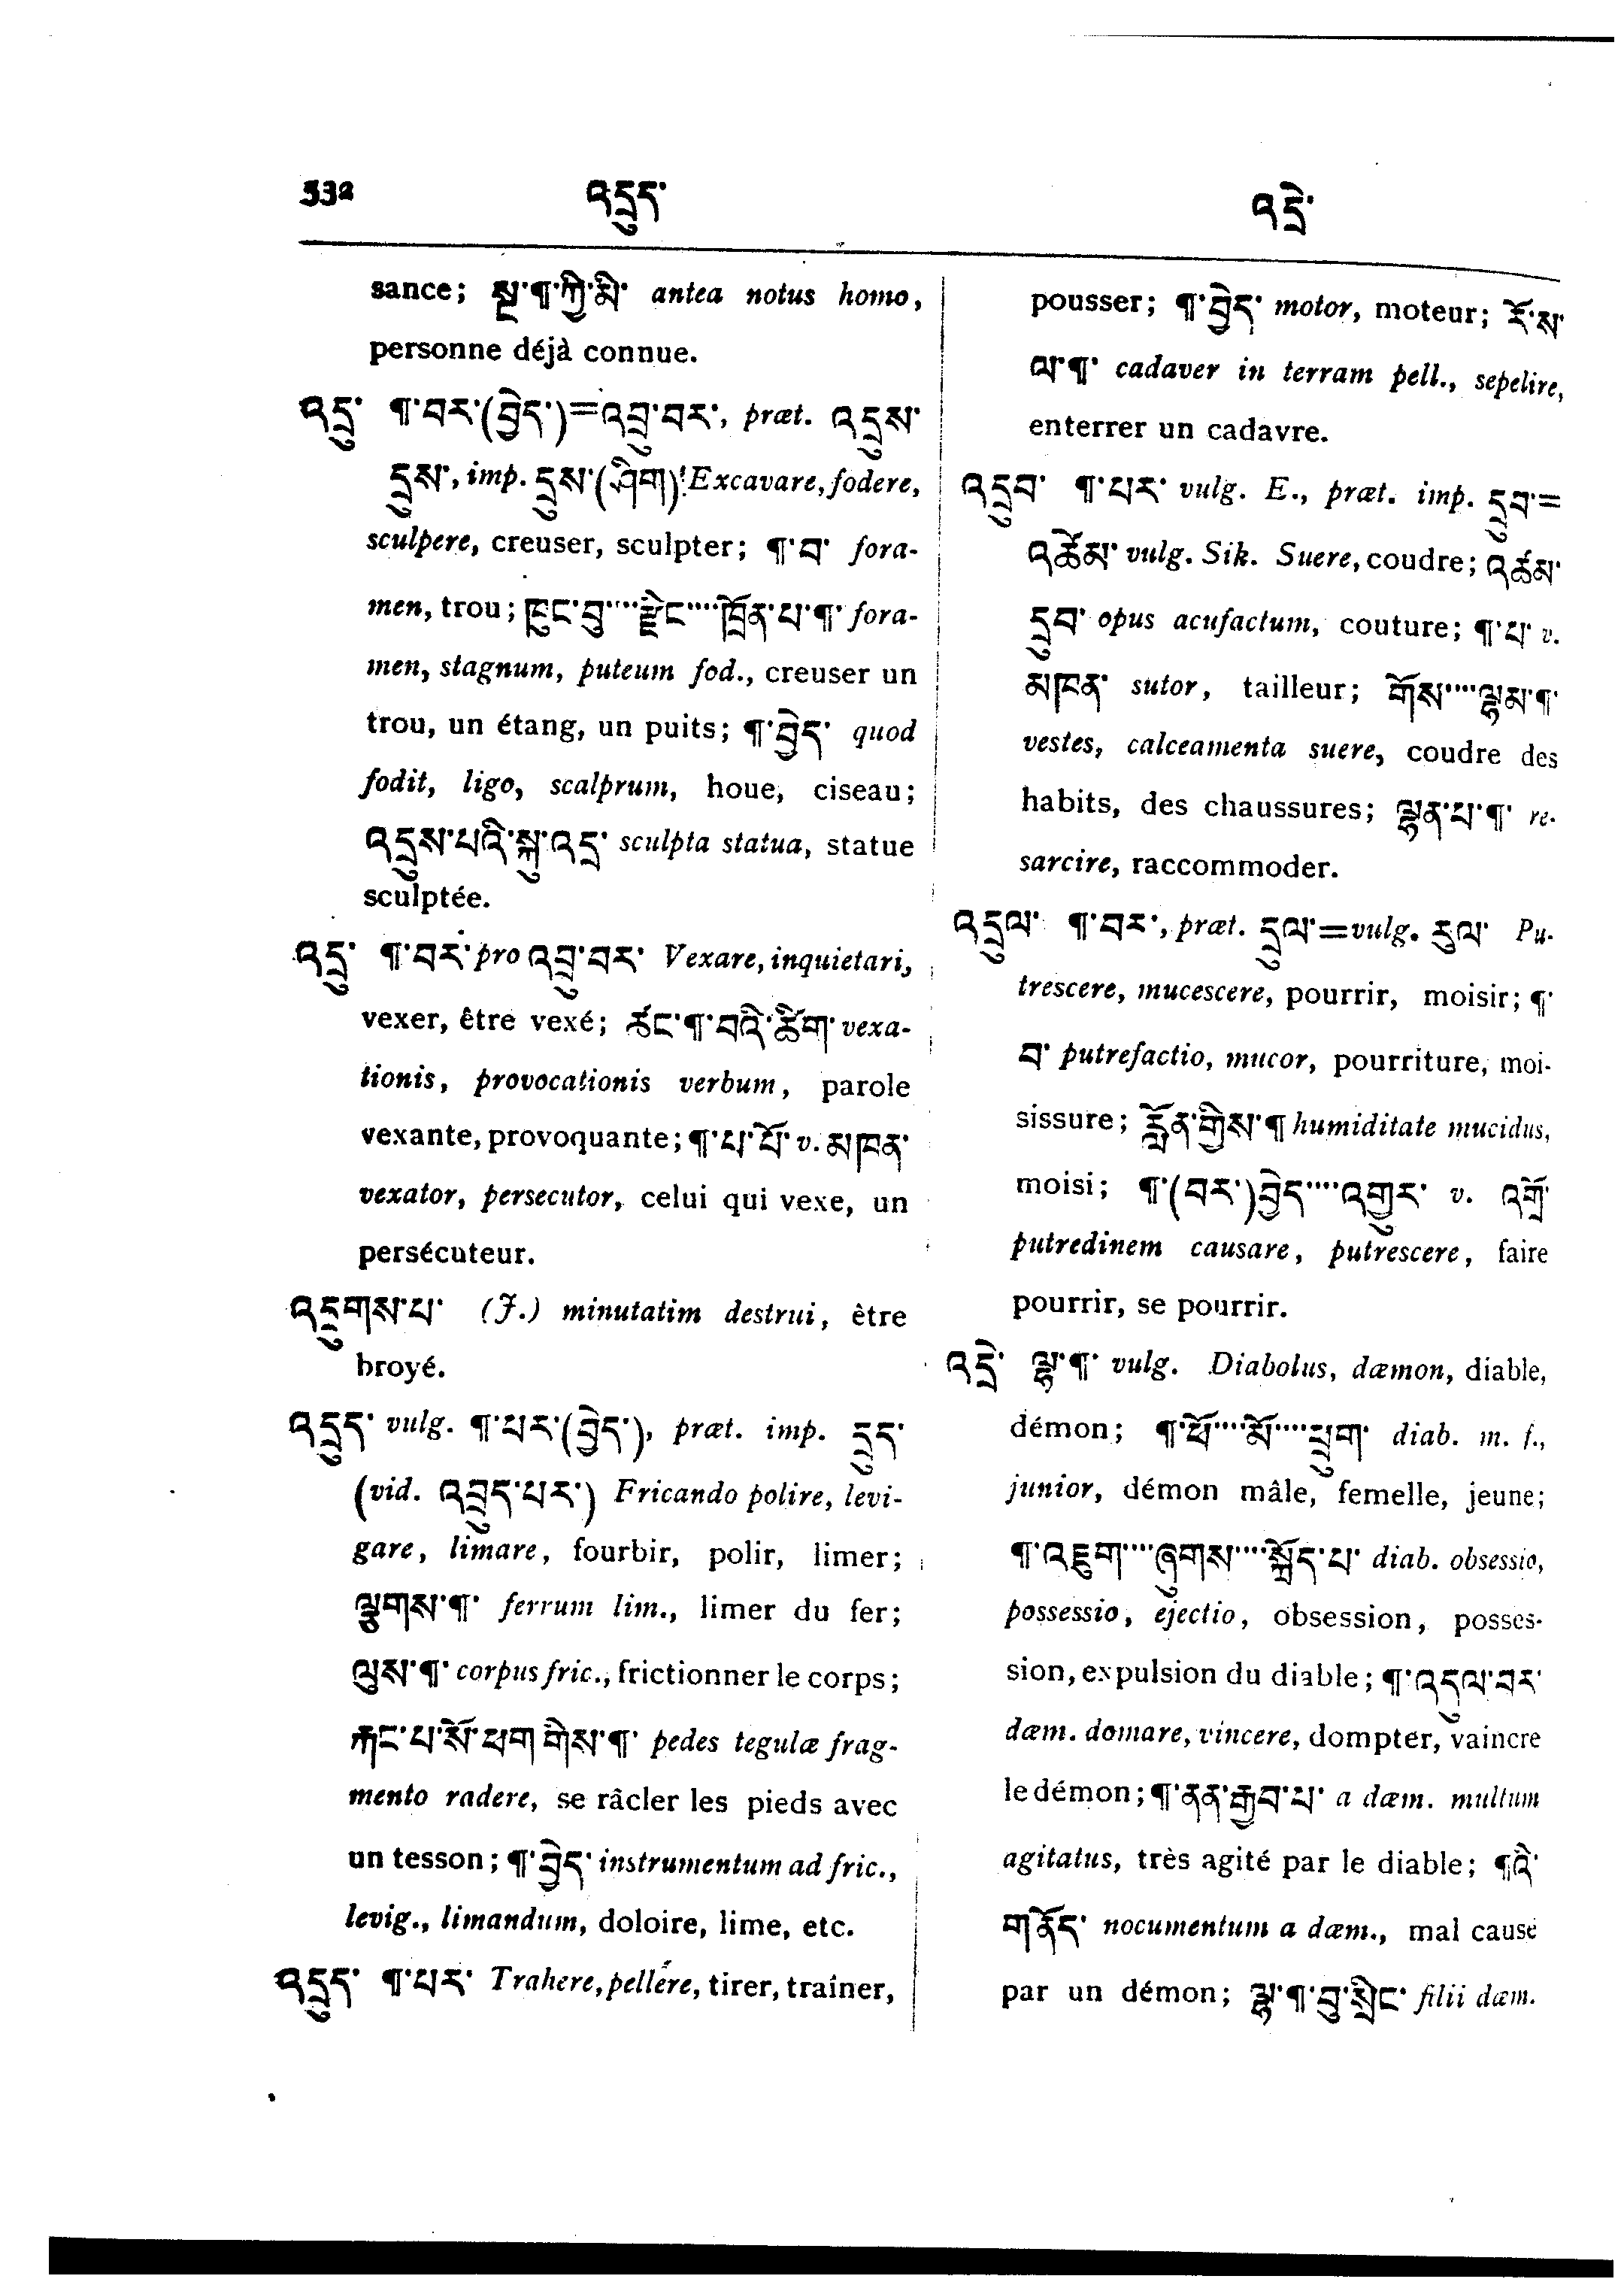 532 འདྲུད་ འདྲེ་
sance; སྔ་¶་ཀྱི་མི་ antea notus homo,
personne déjà connue.
འདྲུ་ ¶་བར་(བྱེད་)=འབྲུ་བར་, præt. འདྲུས་
དྲུས་, imp. དྲུས་(ཤིག) Excavare, fodere,
sculpere, creuser, sculpter; ¶་བ་ fora-
men, trou; ཁུང་བུ་····རྫིང་····ཁྲོན་པ་¶་ fora-
men, stagnum, puteum fod., creuser un
trou, un étang, un puits; ¶་བྱེད་ quod
fodit, ligo, scalprum, houe, ciseau;
འདྲུས་པའི་སྐུ་འདྲ་ sculpta statua, statue
sculptée.
འདྲུ་ ¶་བར་ pro འབྲུ་བར་ Vexare, inquietari,
vexer, être vexé; ཚང་¶་བའི་ཚིག་ vexa-
tionis, provocationis verbum, parole
vexante, provoquante; ¶་པ་པོ་ v. མཁན་
vexator, persecutor, celui qui vexe, un
persécuteur.
འདྲུགས་པ་ (J.) minutatim destrui, être
broyé.
འདྲུད་ vulg. ¶་པར་(བྱེད་), præt. imp. དྲུད་
(vid. འབྲུད་པར་) Fricando polire, levi-
gare, limare, fourbir, polir, limer;
ལྕགས་¶་ ferrum lim., limer du fer;
ལུས་¶་ corpus fric., frictionner le corps;
རྐང་པ་སོ་ཕག གིས་¶་ pedes tegulæ frag-
mento radere, se râcler les pieds avec
un tesson; ¶་བྱེད་ instrumentum ad fric.,
levig., limandum, doloire, lime, etc.
འདྲུད་ ¶་པར་ Trahere, pellere, tirer, traîner,
pousser; ¶་བྱེད་ motor, moteur; རོ་ས་
ལ་¶་ cadaver in terram pell., sepelire,
enterrer un cadavre.
འདྲུབ་ ¶་པར་ vulg. E., præt. imp. དྲུབ་=
འཚེམ་ vulg. Sik. Suere, coudre; འཚམ་
དྲུབ་ opus acufactum, couture; ¶་པ་ v.
མཁན་ sutor, tailleur; གོས་····ལྷམ་¶་
vestes, calceamenta suere, coudre des
habits, des chaussures; ལྷན་པ་¶་ re-
sarcire, raccommoder.
འདྲུལ་ ¶་བར་, præt. དྲུལ་=vulg. རུལ་ Pu-
trescere, mucescere, pourrir, moisir; ¶་
བ་ putrefactio, mucor, pourriture, moi-
sissure; རློན་གྱིས་¶ humiditate mucidus,
moisi; ¶་(བར་)བྱེད་····འགྱུར་ v. འགྲོ་
putredinem causare, putrescere, faire
pourrir, se pourrir.
འདྲེ་ ལྷ་¶་ vulg. Diabolus, dæmon, diable,
démon; ¶་ཕོ་····མོ་····ཕྲུག་ diab. m. f.,
junior, démon mâle, femelle, jeune;
¶་འཇུག་····ཞུགས་····སྐྲོད་པ་ diab. obsessio,
possessio, ejectio, obsession, posses-
sion, expulsion du diable; ¶་འདུལ་བར་
dæm. domare, vincere, dompter, vaincre
le démon; ¶་ནན་རྒྱབ་པ་ a dæm. multum
agitatus, très agité par le diable; ¶འི་
གནོད་ nocumentum a dæm., mal causé
par un démon; ལྷ་¶་བུ་སྲིང་ filii dæm.